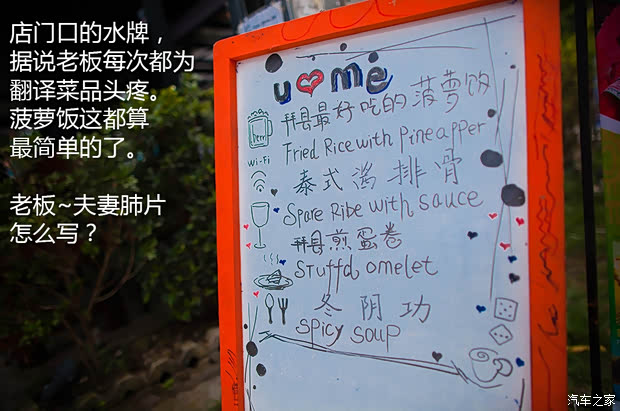 店门口的水牌，
据说老板每次都为
翻译菜品头疼。
菠萝饭这都算
最简单的了。
老板~夫妻肺片
怎么写？
u me
拜县最好吃的菠萝饭
Fried Rice with pineapper
beer
Wi-Fi
泰式酱排骨
Spare Ribe with sauce
拜县煎蛋卷
Stuffd omelet
冬阴功
Spicy soup
汽车之家